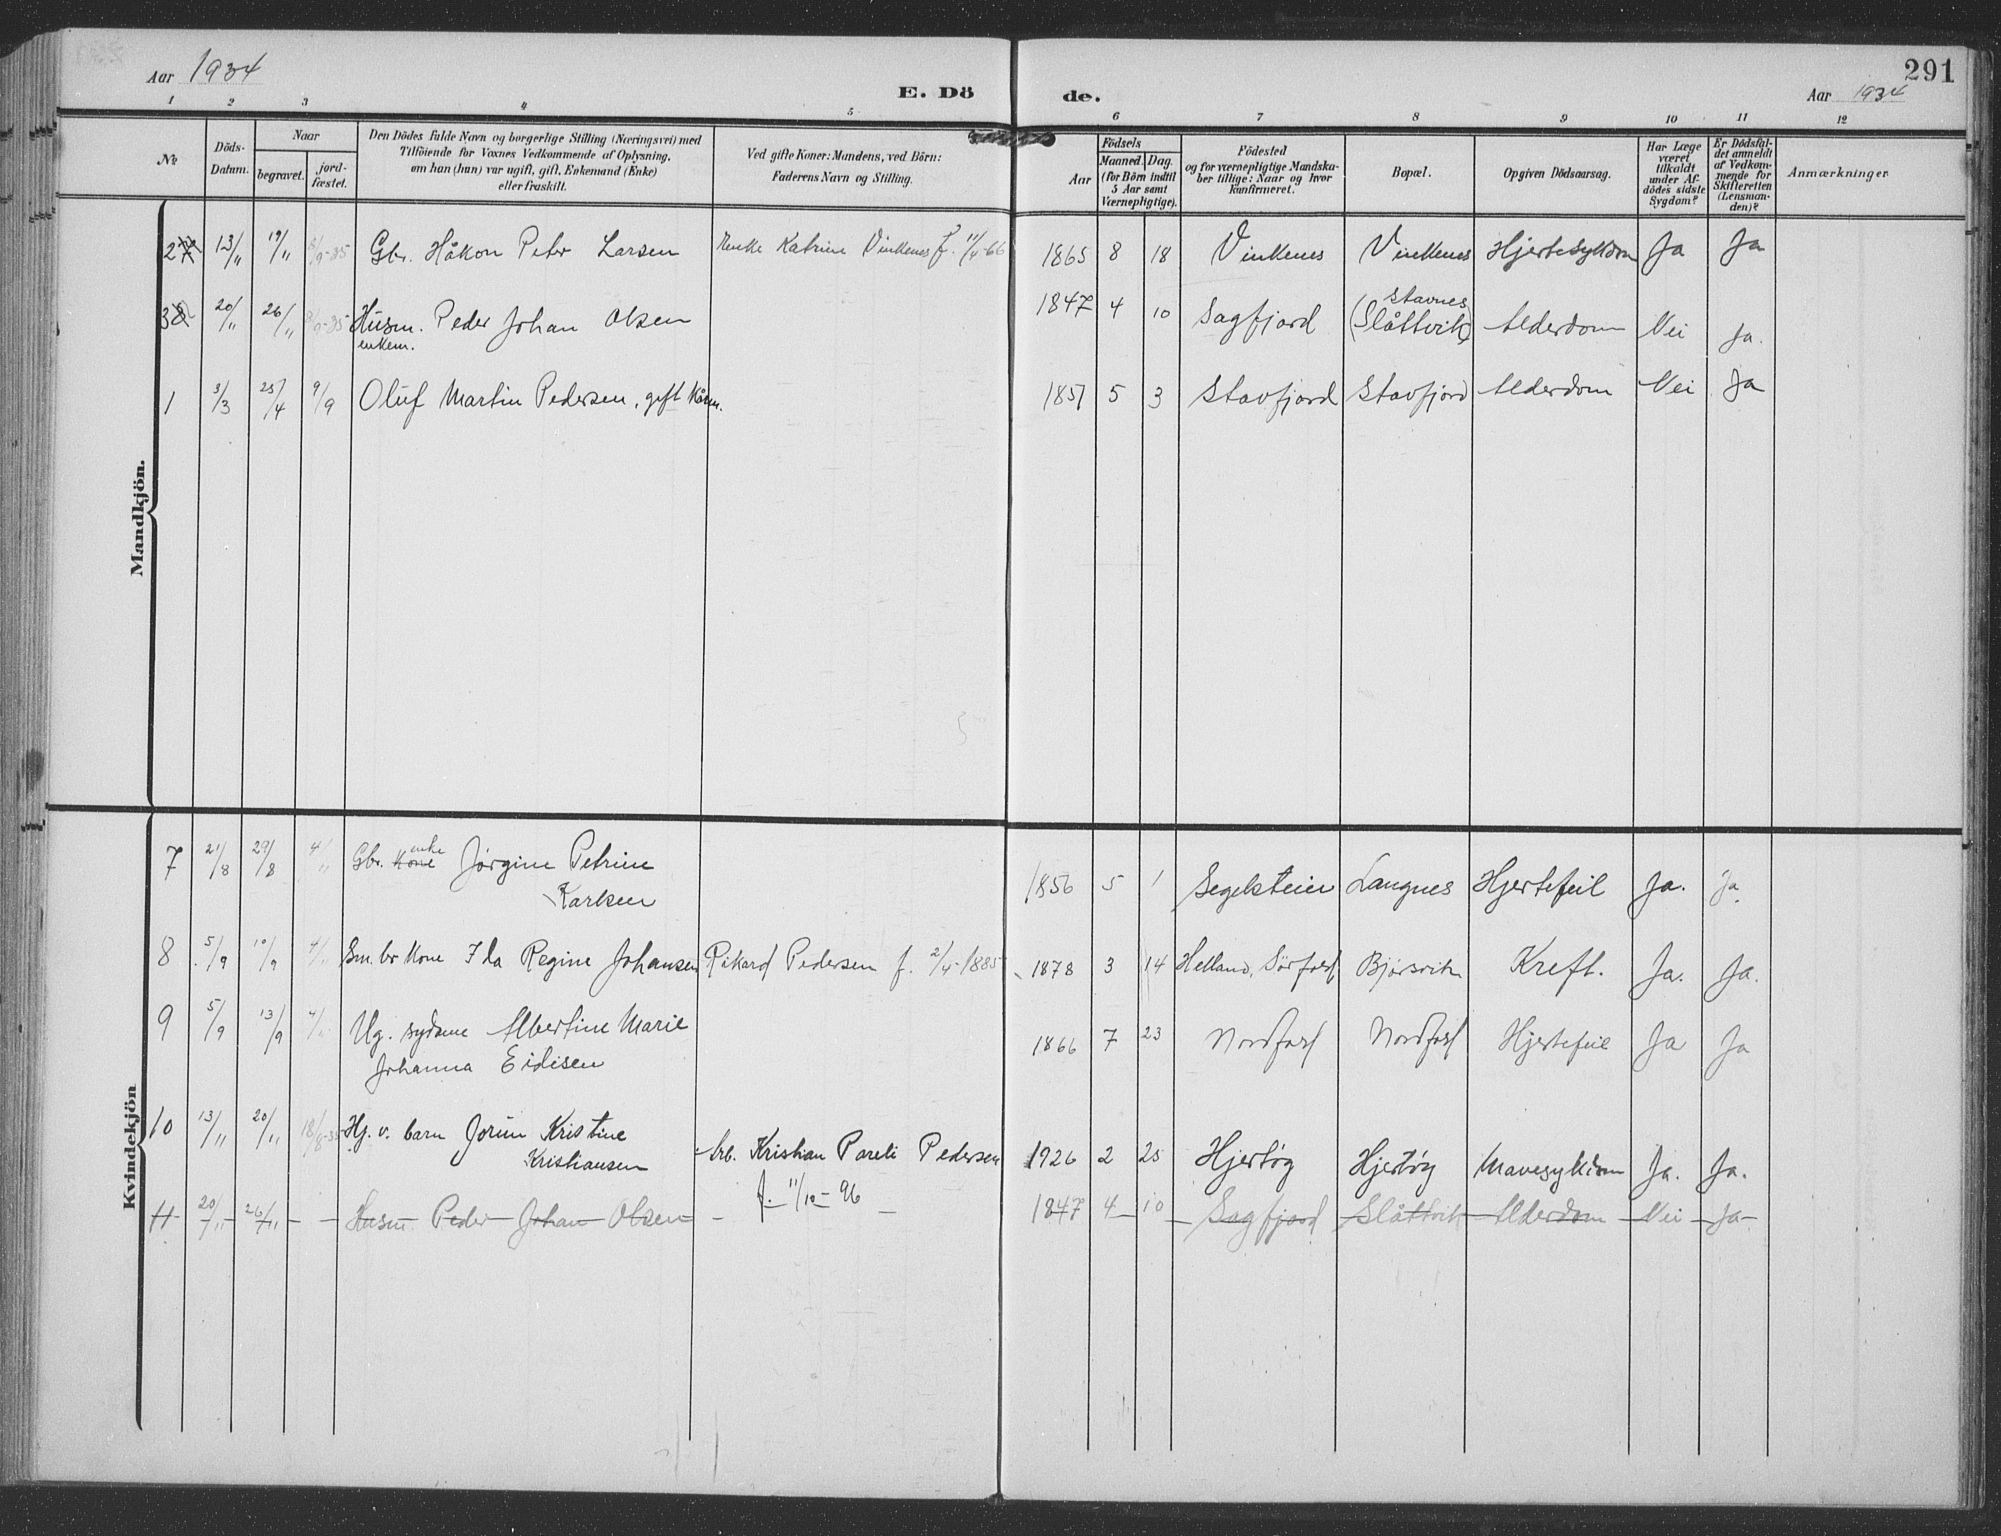 291
Aar 1934
E. Dö
de.
Aar 1934
1 2 3 4 5 6 7 8 9 10 11 12
No
Döds-
Datum.
Naar
begravet.
jord-
fæstet.
Den Dödes fulde Navn og borgerlige Stilling (Næringsvei) med
Tilföiende for Voxnes Vedkommende af Oplysning,
om han (hun) var ugift, gift, Enkemand (Enke)
eller fraskilt.
Ved gifte Koner: Mandens, ved Börn:
Faderens Navn og Stilling.
Födsels
Aar
Maaned. Dag.
(for Börn indtil
5 Aar samt
Værnepligtige).
Födested
og for værnepligtige Mandska-
ber tillige: Naar og hvor
konfirmeret.
Bopæl.
Opgiven Dödsaarsag.
Har Læge
været
tilkaldt
under Af-
dödes sidste
Sygdom?
Er Dödsfal-
det anmeldt
af Vedkom-
mende for
Skifteretten
(Lensman-
den)?
Anmærkninger
Mandkjön.
2 13/11 19/11 8/9-35 Gbr. Håkon Peter Larsen Katrine Vinkenes f. 11/4-66 1865 8 18 Vinkenes Vinkenes Hjertesykdom Ja Ja
3 20/11 26/11 8/9-35 Husm. Peder Johan Olsen 1847 4 10 Sagfjord Stavnes (Slåttvik) Alderdom Nei Ja.
enkem.
1 3/3 25/4 9/9 Oluf Martin Pedersen, gift 1851 5 3 Stavfjord Stavfjord Alderdom Nei Ja
Kvindekjön
7 21/8 29/8 4/11 Gbr. Kone enke Jørgine Petrine
Karlsen 1856 5 1 Segelsteien Langnes Hjertefeil Ja. Ja.
8 5/9 10/9 4/11 Sm. br kone Ida Regine Johansen Rikard Pedersen f. 2/4-1885 1878 3 14 Helland, Sörfold Bjørsvik Kreft. Ja. Ja.
9 5/9 13/9 4/11 Ug. sydame Albertine Marie
Johanna Eidisen 1866 7 23 Nordfold Nordfold Hjertefeil Ja Ja
10 13/11 20/11 18/8-35 Hj. v. barn Jorun Kristine
Kristiansen Arb. Kristian Pareli Pedersen 1926 2 25 Hjertøy Hjertøy Mavesykdom Ja. Ja.
f. 11/12-96
11 20/11 26/11 Husm. Peder Johan Olsen 1847 4 10 Sagfjord Slåttvik Alderdom Nei Ja